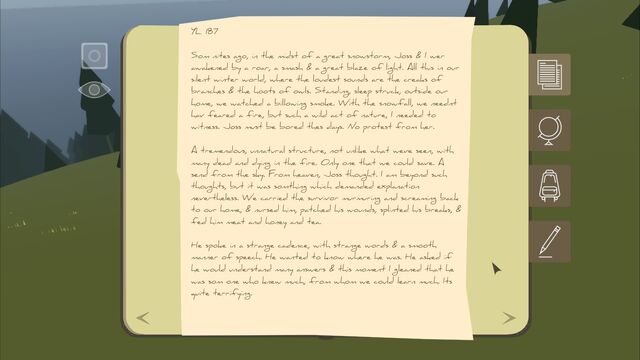 YL 187
Som nites ago, in the midst of a great snowstorm, Joss & I wer
awakened by a roar, a smash & a great blaze of light. All this in our
silent winter world, where the loudest sounds are the creaks of
branches & the hoots of owls. Standing, sleep struck, outside our
home, we watched a billowing smoke. With the snowfall, we neednt
hav feared a fire, but such a wild act of nature, I needed to
witness. Joss must be bored thes days. No protest from her.
A tremendous, unnatural structure, not unlike what weve seen, with
many dead and dying in the fire. Only one that we could save. A
send from the sky. From heaven, Joss thought. I am beyond such
thoughts, but it was somthing which demanded explanation
nevertheless. We carried the survivor murmuring and screaming back
to our home, & nursed him, patched his wounds, splinted his breaks, &
fed him meat and honey and tea.
He spoke in a strange cadence, with strange words & a smooth
manner of speech. He wanted to know where he was. He asked if
he would understand many answers & this moment I gleaned that he
was som one who knew much, from whom we could learn much. Its
quite terrifying.